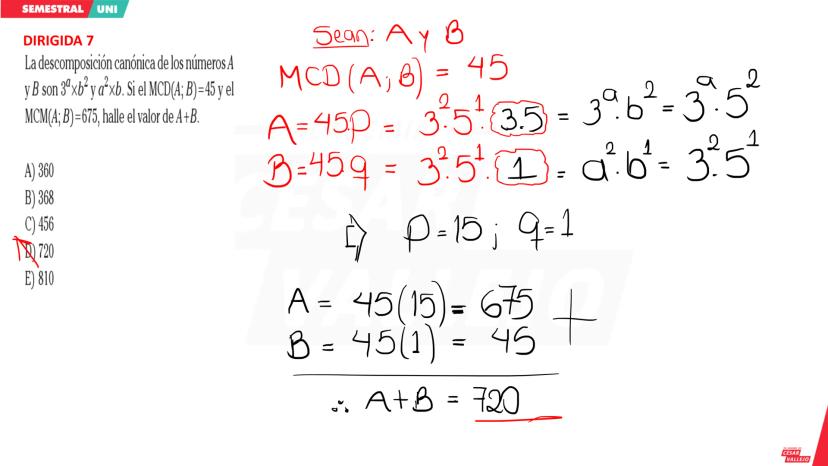 SEMESTRAL UNI
DIRIGIDA 7
La descomposición canónica de los números A
y B son 3^a×b^2 y a^2×b. Si el MCD(A; B)=45 y el
MCM(A; B)=675, halle el valor de A+B.
A) 360
B) 368
C) 456
D) 720
E) 810
Sean: A y B
MCD(A;B) = 45
A=45p = 3^2.5^1.3.5 = 3^a.b^2 = 3^a.5^2
B=45q = 3^2.5^1.1 = a^2.b^1 = 3^2.5^1
⇒ p=15; q=1
A = 45(15) = 675 +
B = 45(1) = 45
∴ A+B = 720
CESAR
VALLEJO
CESAR
VALLEJO